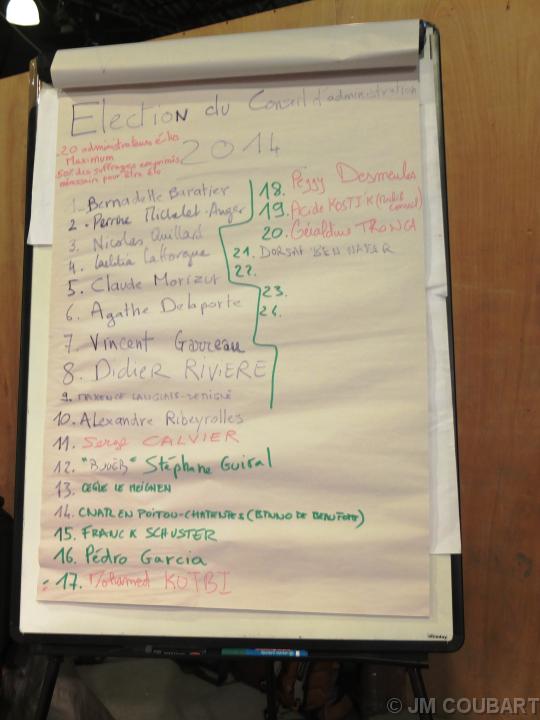 Election du Conseil d'administration
2014
20 administrateurs élus
Maximum
50% des suffrages exprimés
nécessaire pour être élu
1. Bernadette Baratier
2. Perrine Michelet-Auger
3. Nicolas Quillard
4. Laetitia Lafforgue
5. Claude Morizur
6. Agathe Delaporte
7. Vincent Garreau
8. Didier RIVIERE
9. MAXENCE LAUGLAIS-
10. Alexandre Ribeyrolles
11. Serge CALVIER
12. "BJÖËB" Stéphane Guiral
13. CECILE LE MEIGNEN
14. CNAR EN POITOU-CHARENTES (BRUNO DE BEAUFORT)
15. FRANCK SCHUSTER
16. Pedro Garcia
17. Mohamed KOTBI
18. Peggy Desmeules
19. Acide KOSTIK
20. Géraldine TRONCA
21. DORSAF BEN NACER
22.
23.
24.
© JM COUBART